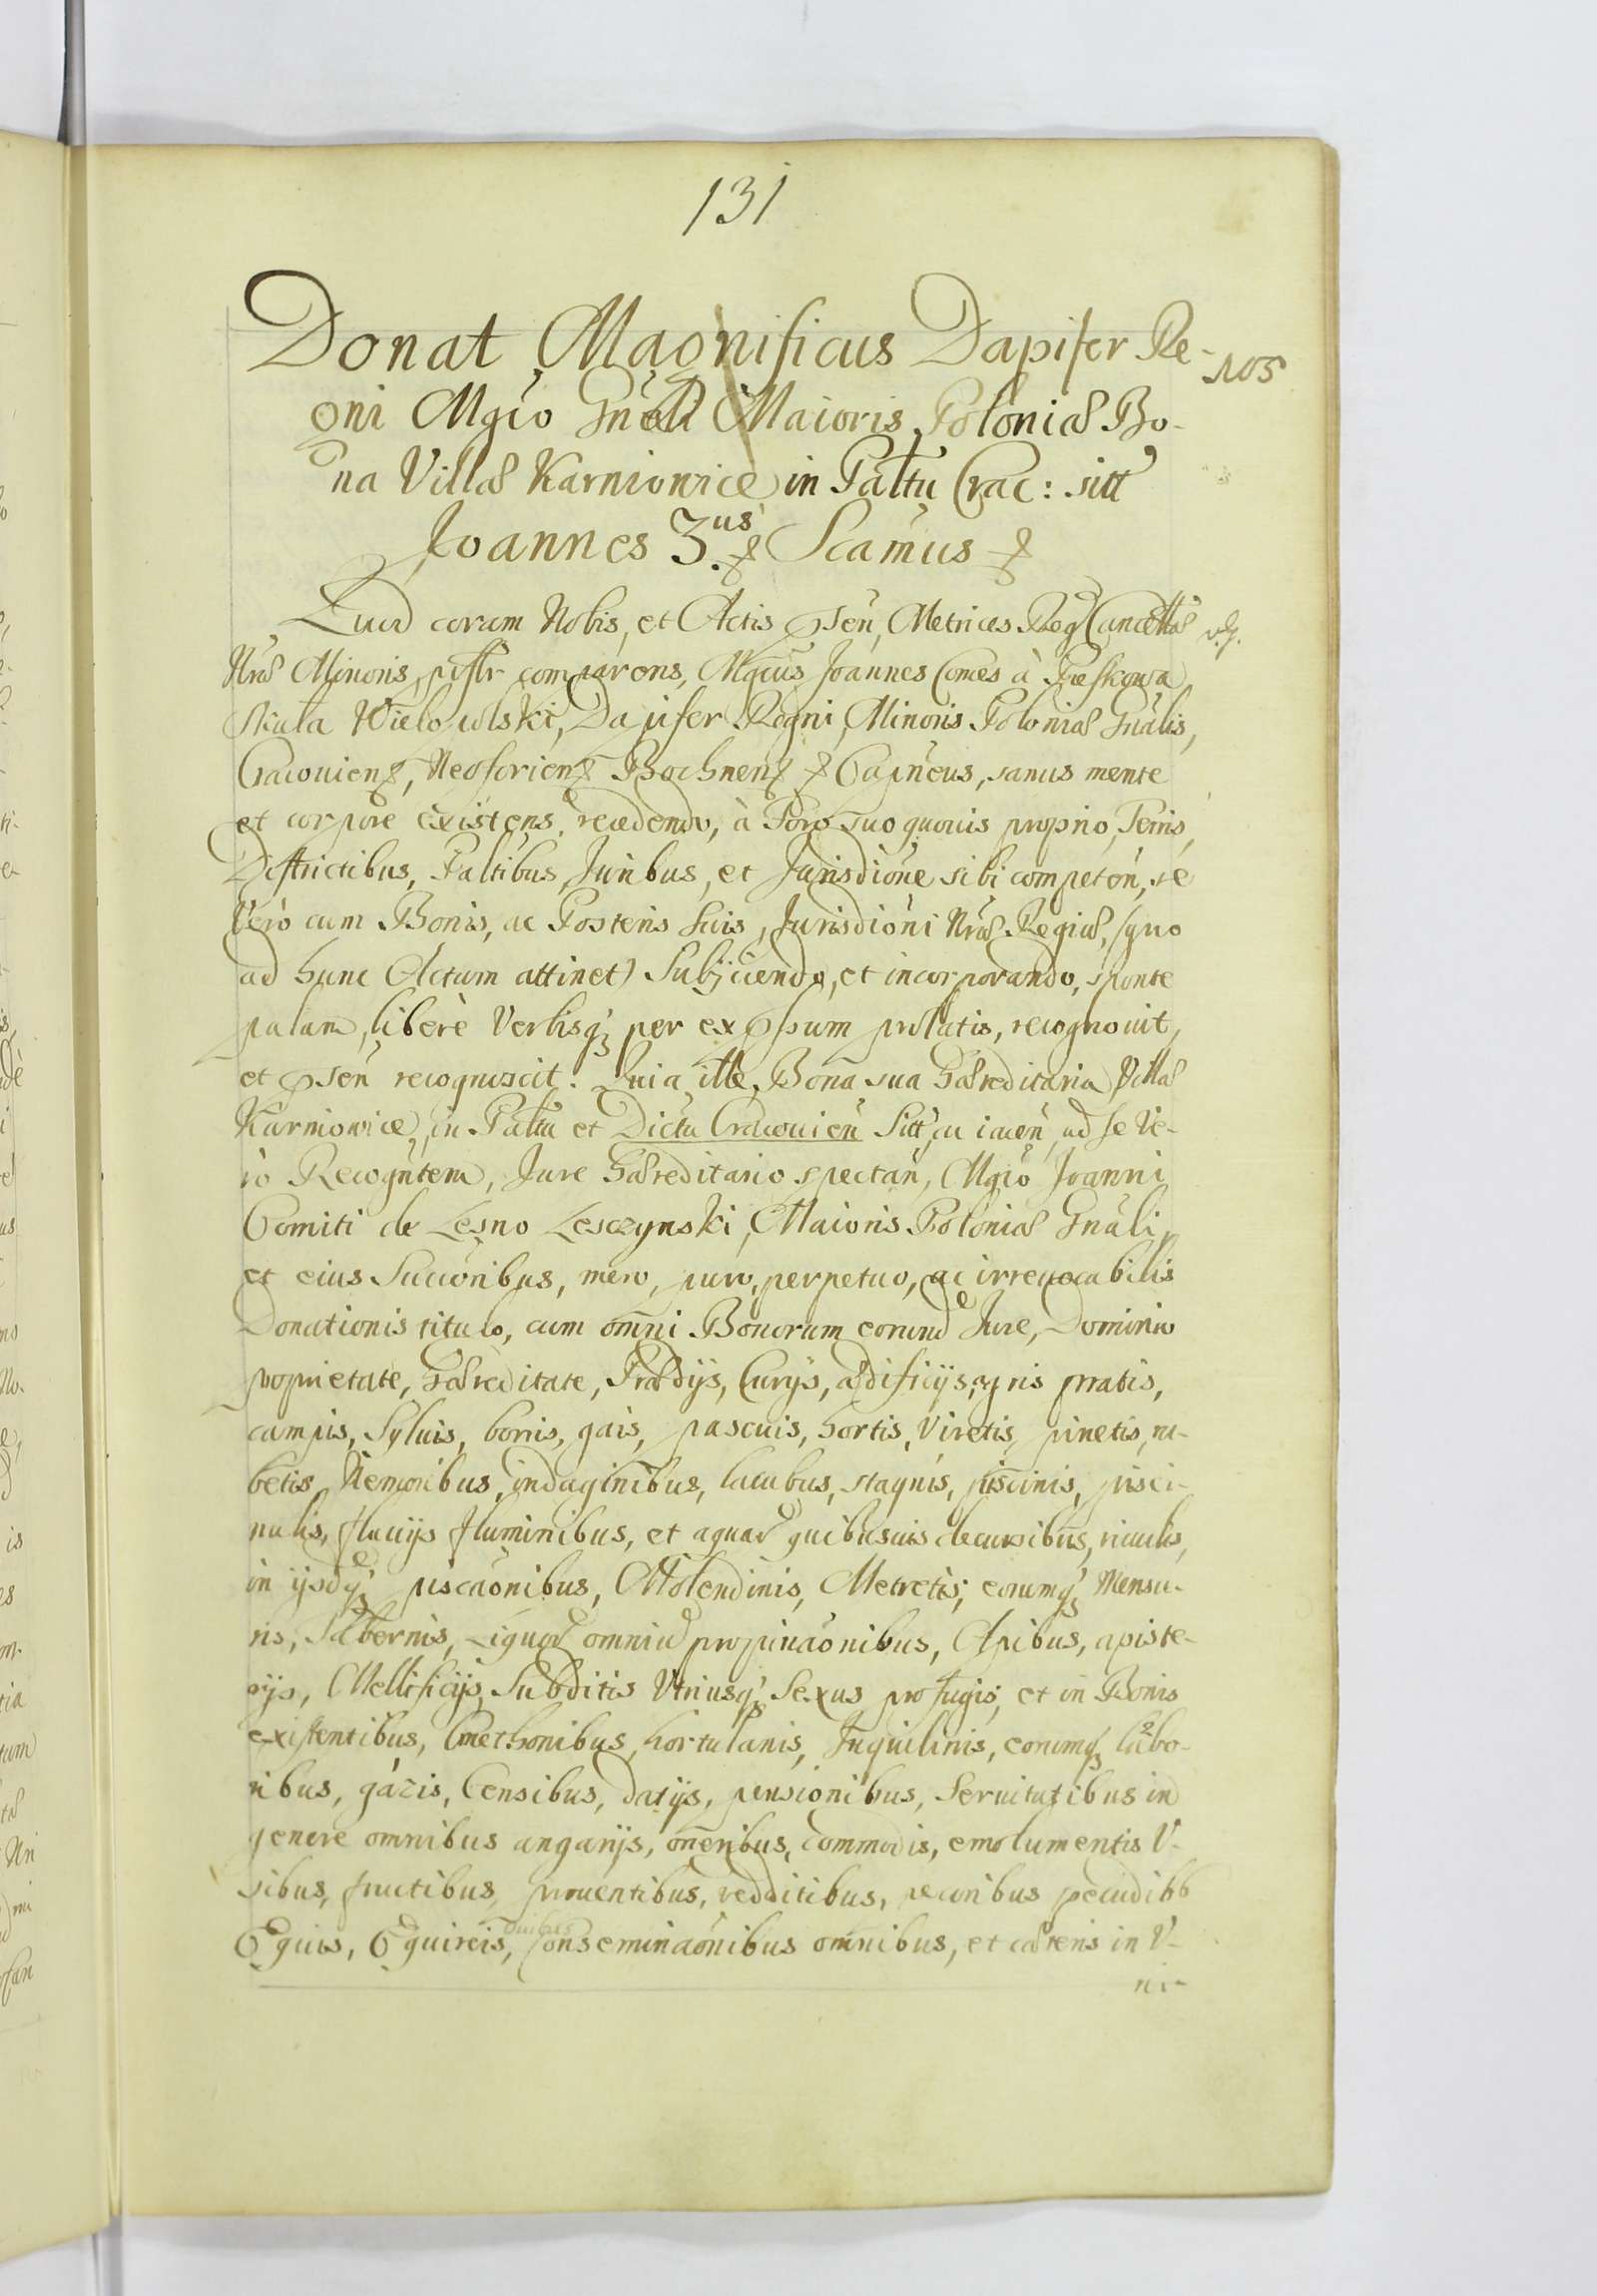 131
Donat Magnificus Dapifer Re-
105
gni Mgco Gnali Maioris Poloniæ Bo-
na Villæ Karniowice in Paltu Crac: sitt
Joannes 3.us Scamus
Quod coram Nobis, et Actis psen, Metrices Reg Cancellæ
Nræ Minoris, psslr comparens, Mgcus Joannes Comes à Pieskowa
Skala Wielopolski, Dapifer Regni, Minoris Poloniæ Gnalis,
Cracouien, Neoforien Bochnen Capneus, sanus mente
et corpore existens, recedendo, à Foro suo quouis proprio, Terris,
Districtibus, Paltibus, Juribus, et Jurisdione sibi competen, se
Vero cum Bonis, ac Posteris suis, Jurisdioni Nræ Regiæ, (quo
ad hunc Actum attinet) Subijciendo, et incorporando, sponte
palam, liberè Verbisq per expssum prolatis, recognouit,
et psen recognoscit: Quia ille, Bona sua Hæreditaria Villæ
Karniowice, in Paltu et Dictu Cracouien Sitt, ac iacen, ad se Ve-
ro Recognitem, Jure Hæreditario spectan, Mgco Joanni
Comiti de Lesno Lesczynski, Maioris Poloniæ Gnali,
et eius Succoribus, mero, puro, perpetuo, ac irreuocabilis
Donationis titulo, cum omni Bonorum eorund Jure, Dominio
proprietate, Hæreditate, Prædijs, Curijs, ædificijs, agris pratis,
campis, Syluis, borris, gais, pascuis, hortis, Viretis, pinetis, ru-
betis, Nemoribus, indaginibus, lacubus, stagnis, piscinis, pisci-
nulis, fluuijs fluminibus, et aquar quibusuis decursibus, riuulis,
in ijsdq piscaonibus, Molendinis, Metretis, eorumq Mensu-
ris, Tabernis, Liquor omniu propinaonibus, Apibus, apiste-
rijs, Mellificijs, Subditis Vtriusq Sexus profugis, et in Bonis
existentibus, Cmethonibus, hortulanis, Inquilinis, eorumq labo-
ribus, gazis, Censibus, datijs, pensionibus, Seruitutibus in
genere omnibus angarijs, oneribus, commodis, emolumentis V-
sibus, fructibus, prouentibus, redditibus, pecoribus pecudibb
Equis, Equireis, ouibus Conseminaonibus omnibus, et cæteris in V-
ni-